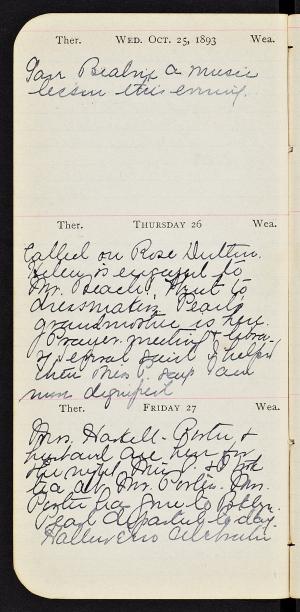 Ther. WED. OCT. 25, 1893 Wea.
Gave Beatrix a music
lesson this evening.
Ther. THURSDAY 26 Wea.
Called on Rose Dutton.
Helen is engaged to
Mr. Beach! Went to
dressmaking. Pearl's
grandmother is here.
Prayer meeting &
said I helped
then Miss
more dignified
Ther. FRIDAY 27 Wea.
Mrs. Haskell-Porter &
husband are here for
the night. Miss & I took
tea at Mr. Porter. Mrs.
Porter has gone to
Pearl departed today.
Hallowe'en celebration